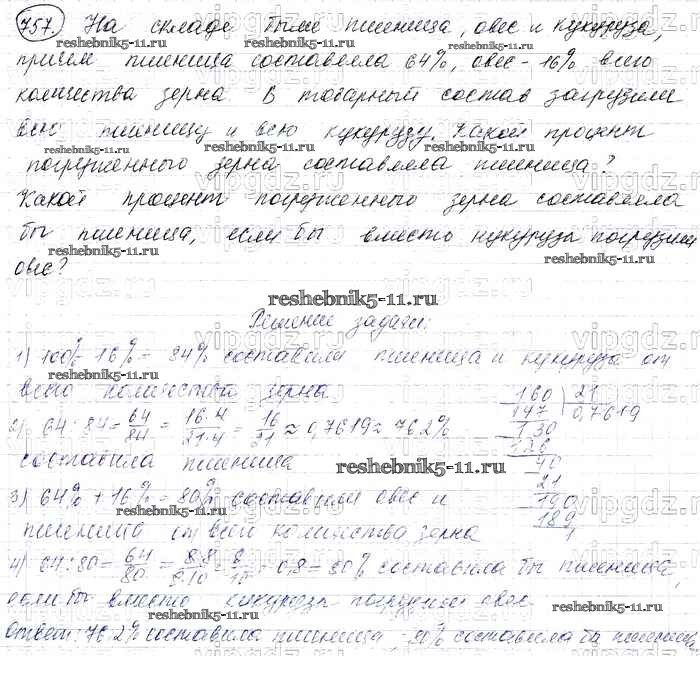 757. На складе были пшеница, овес и кукуруза,
reshebnik5-11.ru reshebnik5-11.ru
причём пшеница составляла 64%, овес - 16% всего
количества зерна. В товарный состав загрузили
всю пшеницу и всю кукурузу. Какой процент
reshebnik5-11.ru reshebnik5-11.ru
погруженного зерна составляла пшеница?
Какой процент погруженного зерна составляла
бы пшеница, если бы вместо кукурузы погрузили
reshebnik5-11.ru reshebnik5-11.ru
овес?
reshebnik5-11.ru
Решение задачи:
1) 100% - 16% = 84% составили пшеница и кукуруза от
reshebnik5-11.ru
всего количества зерна
2) 64 : 84 = 64/84 = 16·4/21·4 = 16/21 ≈ 0,7619 ≈ 76,2%
составила пшеница
160 21
147 0,7619
130
126
40
21
190
189
1
reshebnik5-11.ru
3) 64% + 16% = 80% составили овес и
reshebnik5-11.ru
пшеница от всего количества зерна
4) 64 : 80 = 64/80 = 8·8/8·10 = 8/10 = 0,8 = 80% составила бы пшеница,
если бы вместо кукурузы погрузили овес
reshebnik5-11.ru reshebnik5-11.ru
Ответ: 76,2% составила пшеница, 80% составила бы пшеница
vipgdz.ru